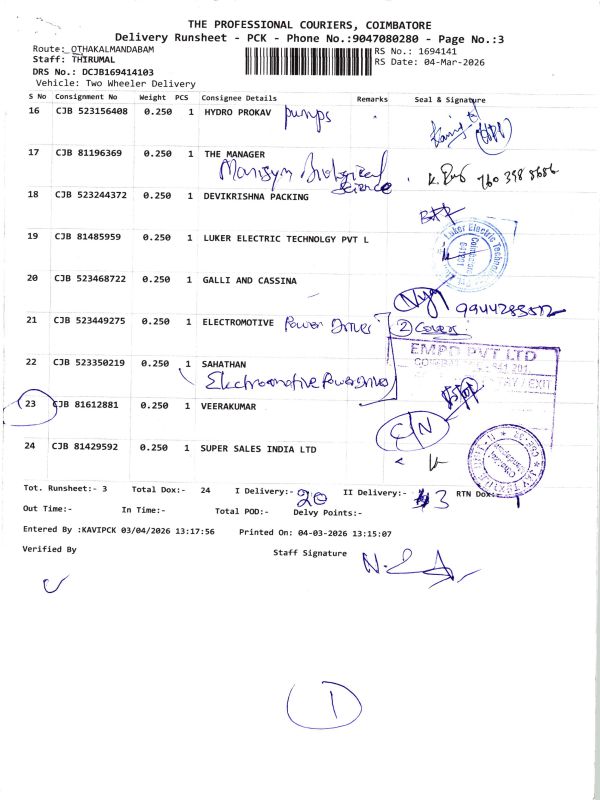 THE PROFESSIONAL COURIERS, COIMBATORE
Delivery Runsheet - PCK - Phone No.:9047080280 - Page No.:3
Route: OTHAKALMANDABAM
RS No.: 1694141
Staff: THIRUMAL
RS Date: 04-Mar-2026
DRS No.: DCJB169414103
Vehicle: Two Wheeler Delivery
S No Consignment No Weight PCS Consignee Details Remarks Seal & Signature
16 CJB 523156408 0.250 1 HYDRO PROKAV pumps
17 CJB 81196369 0.250 1 THE MANAGER
Biological Science
18 CJB 523244372 0.250 1 DEVIKRISHNA PACKING
19 CJB 81485959 0.250 1 LUKER ELECTRIC TECHNOLGY PVT L
Luker Electric Techno
20 CJB 523468722 0.250 1 GALLI AND CASSINA
21 CJB 523449275 0.250 1 ELECTROMOTIVE Power Drives 2) Cover
EMPD PVT LTD
22 CJB 523350219 0.250 1 SAHATHAN
Electromotive Power Drives
23 CJB 81612881 0.250 1 VEERAKUMAR C/N
24 CJB 81429592 0.250 1 SUPER SALES INDIA LTD
Tot. Runsheet:- 3 Total Dox:- 24 I Delivery:- 20 II Delivery:- 3 RTN Dox:-
Out Time:- In Time:- Total POD:- Delvy Points:-
Entered By :KAVIPCK 03/04/2026 13:17:56 Printed On: 04-03-2026 13:15:07
Verified By Staff Signature
1